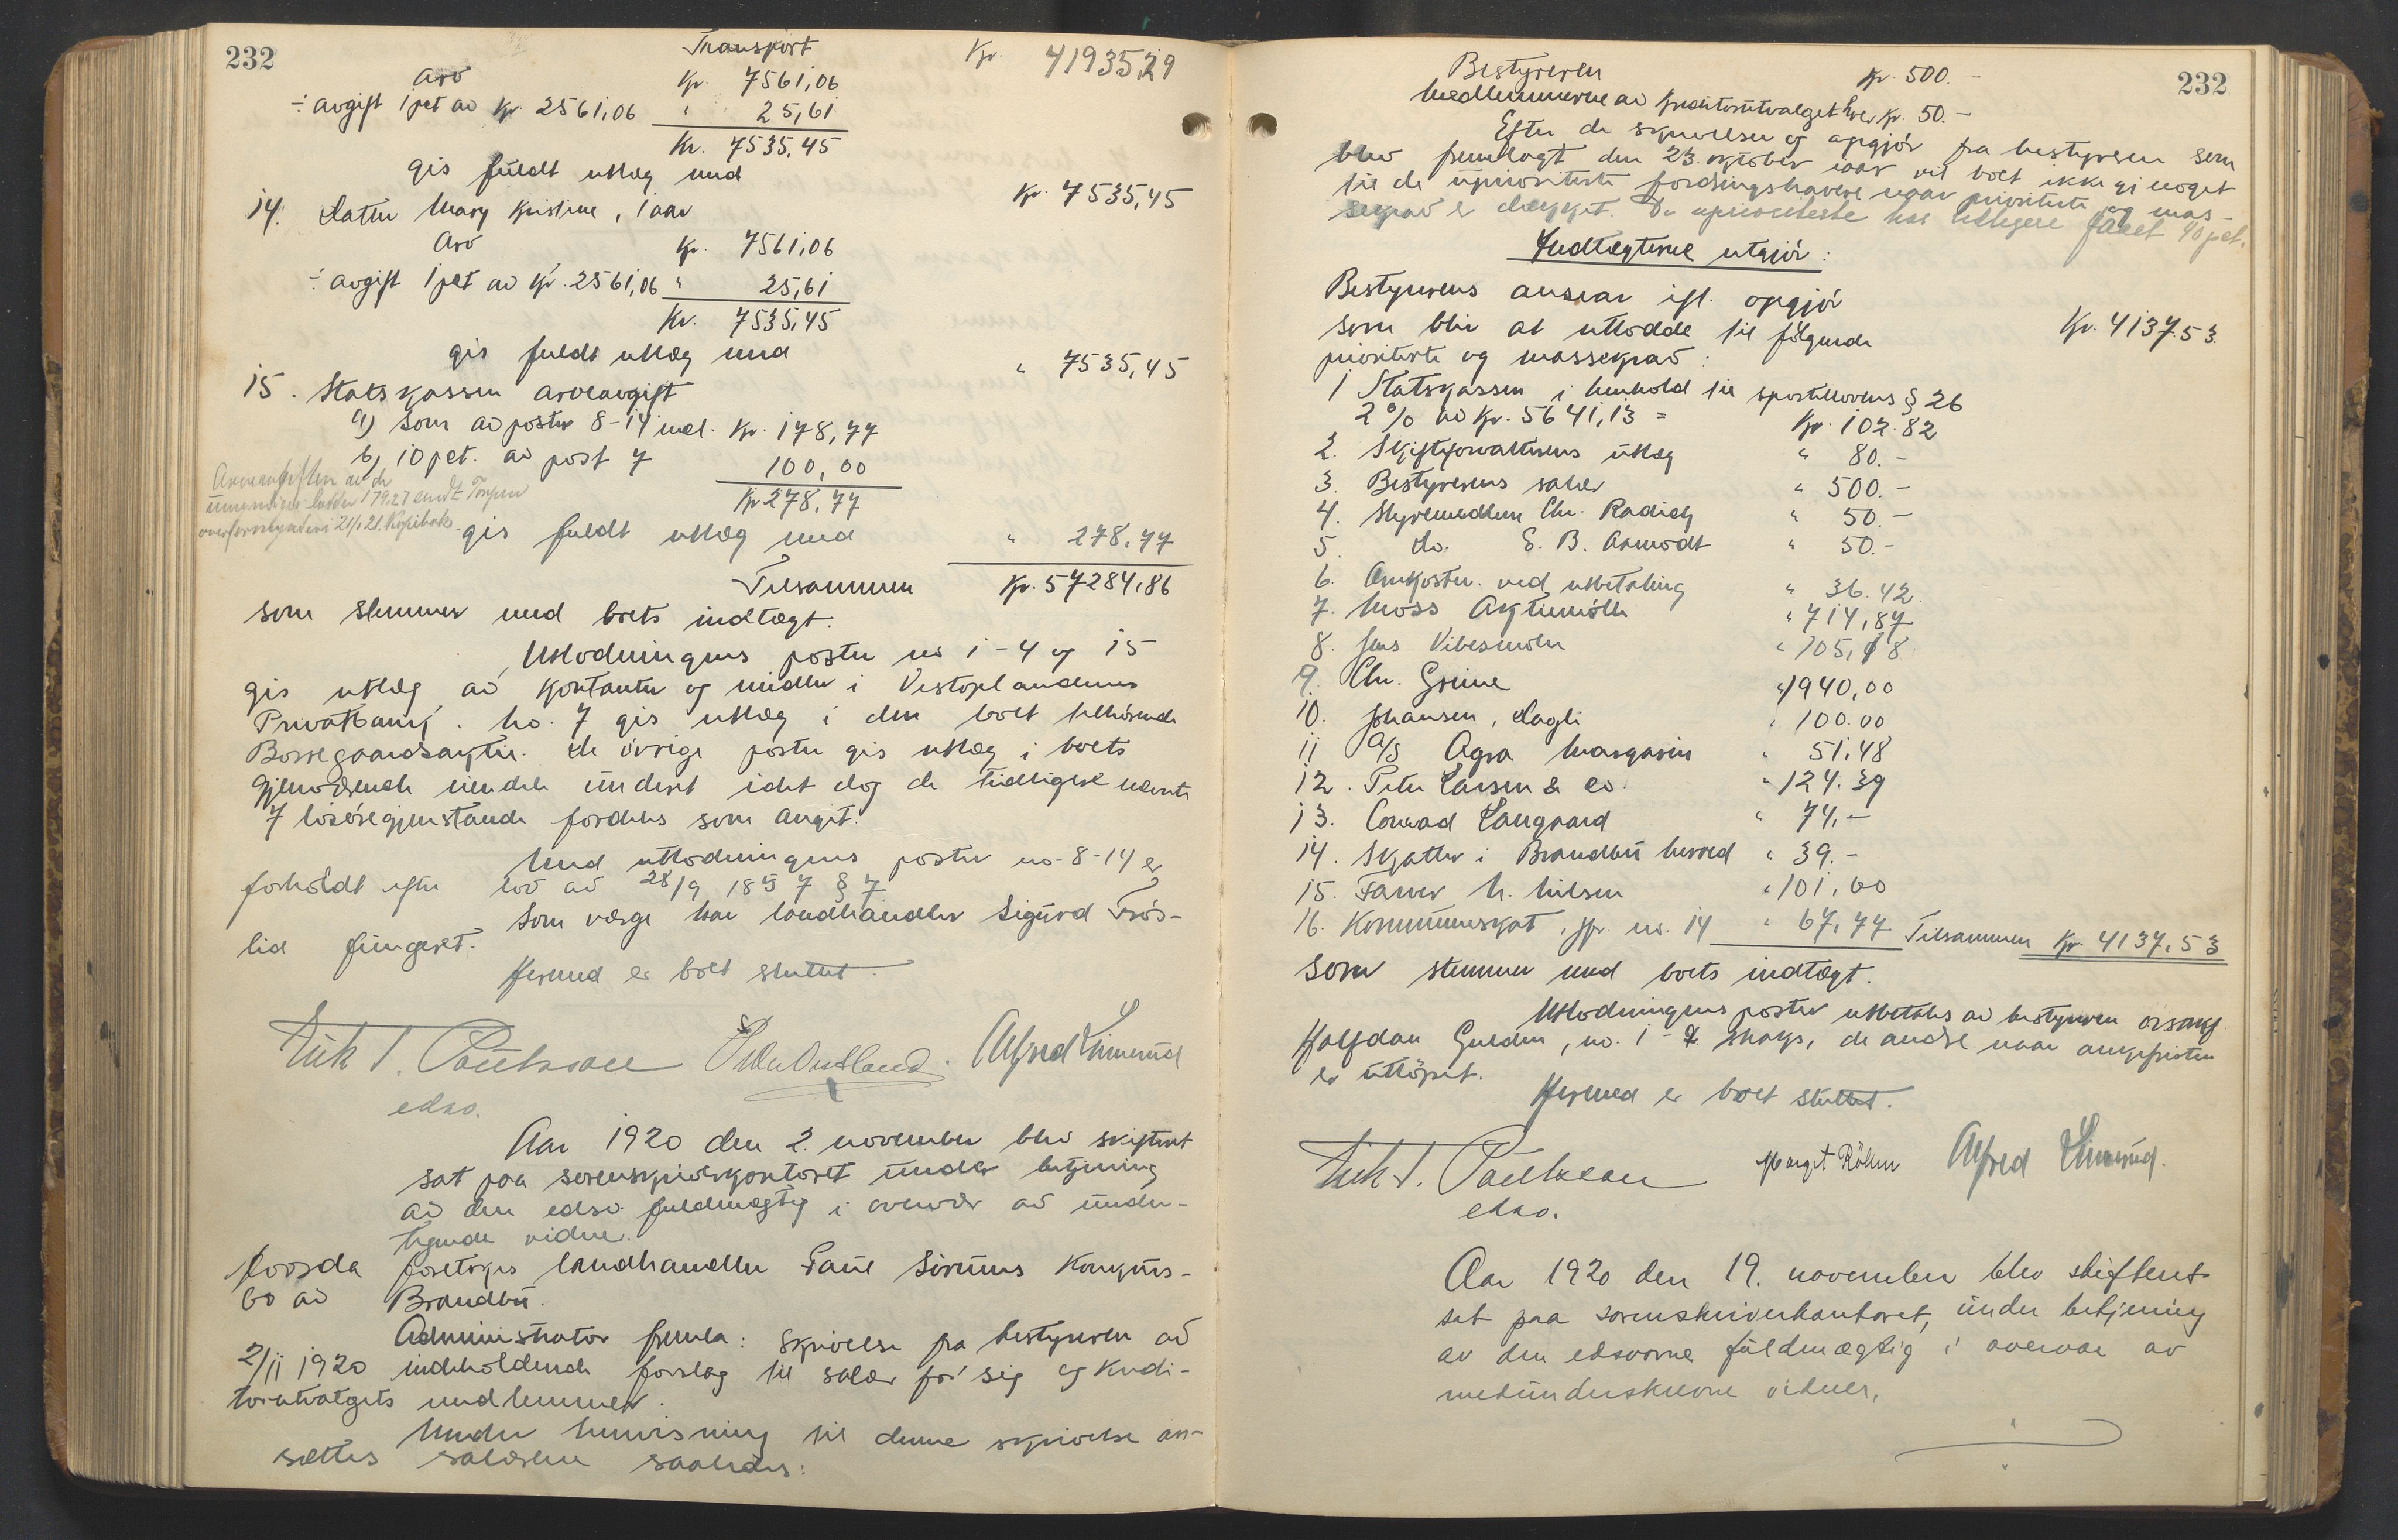 232
Transport Kr. 41935,29
Arv Kr. 7561,06
÷ avgift 1 pct av Kr. 2561,06 " 25,61
Kr. 7535,45
gis fuldt utlæg med Kr. 7535,45
14. Datter Mary Kristine, 1 aar
Arv Kr. 7561,06
÷ avgift 1 pct av Kr. 2561,06 " 25,61
Kr. 7535,45
gis fuldt utlæg med " 7535,45
15. Statskassen arveavgift
a) som av poster 8-14 incl. Kr. 178,77
b) 10 pct. av post 7 100,00
Kr 278,77
Arveavgiften av de
umyndiges lodder 179.27 sendt
overformynderi 21/1 21. Kopibok
gis fuldt utlæg med " 278,77
Tilsammen Kr. 57284,86
som stemmer med boets indtægt.
Utlodningens poster no 1-4 og 15
gis utlæg av kontanter og midler i Vestoplandenes
Privatbank. No. 7 gis utlæg i den boet tilhørende
Borregaardsaktie. De øvrige poster gis utlæg i boets
gjenværende eiendele undtat idet dog de tidligere nævnte
7 løsøregjenstande fordeles som angit.
Med utlodningens poster no. 8-14 er
forholdt efter lov av 28/9 1857 § 7
Som værge har landhandler Sigurd Frøs-
lid fungeret.
Hermed er boet sluttet.
Erik T. Poulsson Alfred Limerud
edsv.
Aar 1920 den 2. november blev skifteret
sat paa sorenskriverkontoret under betjening
av den edsv. fuldmægtig i overvær av under-
tegnede vidner.
Hvorda foretokes landhandler Paul Sørums konkurs-
bo av Brandbu.
Administrator fremla: Skrivelse fra bestyreren av
2/11 1920 indeholdende forslag til salær for sig og kredi-
torutvalgets medlemmer.
Under henvisning til denne skrivelse an-
sættes salærene saaledes:
232
Bestyreren Kr. 500.-
Medlemmerne av kreditorutvalget hver Kr. 50.-
Efter de skrivelser og opgjør fra bestyreren som
blev fremlagt den 23. oktober iaar vil boet ikke gi noget
til de uprioriterte fordringshavere naar prioriterte og mas-
sekrav er dækket. De uprioriterte har tidligere faaet 40 pct.
Indtægterne utgjør:
Bestyrerens ansvar ifl. opgjør Kr. 4137.53
som blir at utlodde til følgende
prioriterte og massekrav:
1 Statskassen i henhold til sportellovens § 26
2 % av Kr. 5641,13 = Kr. 102.82
2. Skifteforvalterens utlæg " 80.-
3. Bestyrerens salær " 500.-
4. Styremedlem Chr. Radich " 50.-
5. do. E. B. Armodt " 50.-
6. Omkostn. ved utbetaling " 36.42
7. Moss Aktiemølle " 714,87
8. Jens Vibesmolen " 105,18
9. Chr. Grime " 1940,00
10. Johansen, Dagli " 100.00
11 A/S Agra Margarin " 51,48
12. Peter Larsen & Co. " 124.39
13. Conrad Langaard " 74,-
14. Skatter i Brandbu herred " 39.-
15. Farver H. Nilsen " 101,60
16. Kommuneskat, jfr. no. 14 " 67,77 Tilsammen Kr. 4137.53
som stemmer med boets indtægt.
Utlodningens poster utbetales av bestyreren o.r.sakf.
Halfdan Gulden, no. 1-7 straks, de andre naar ankefristen
er utløpet.
Hermed er boet sluttet.
Erik T. Poulsson Margit Röhnen Alfred Limerud.
edsv.
Aar 1920 den 19. november blev skifteret
sat paa sorenskriverkontoret, under betjening
av den edsvorne fuldmægtig i overvær av
medunderskrevne vidner.